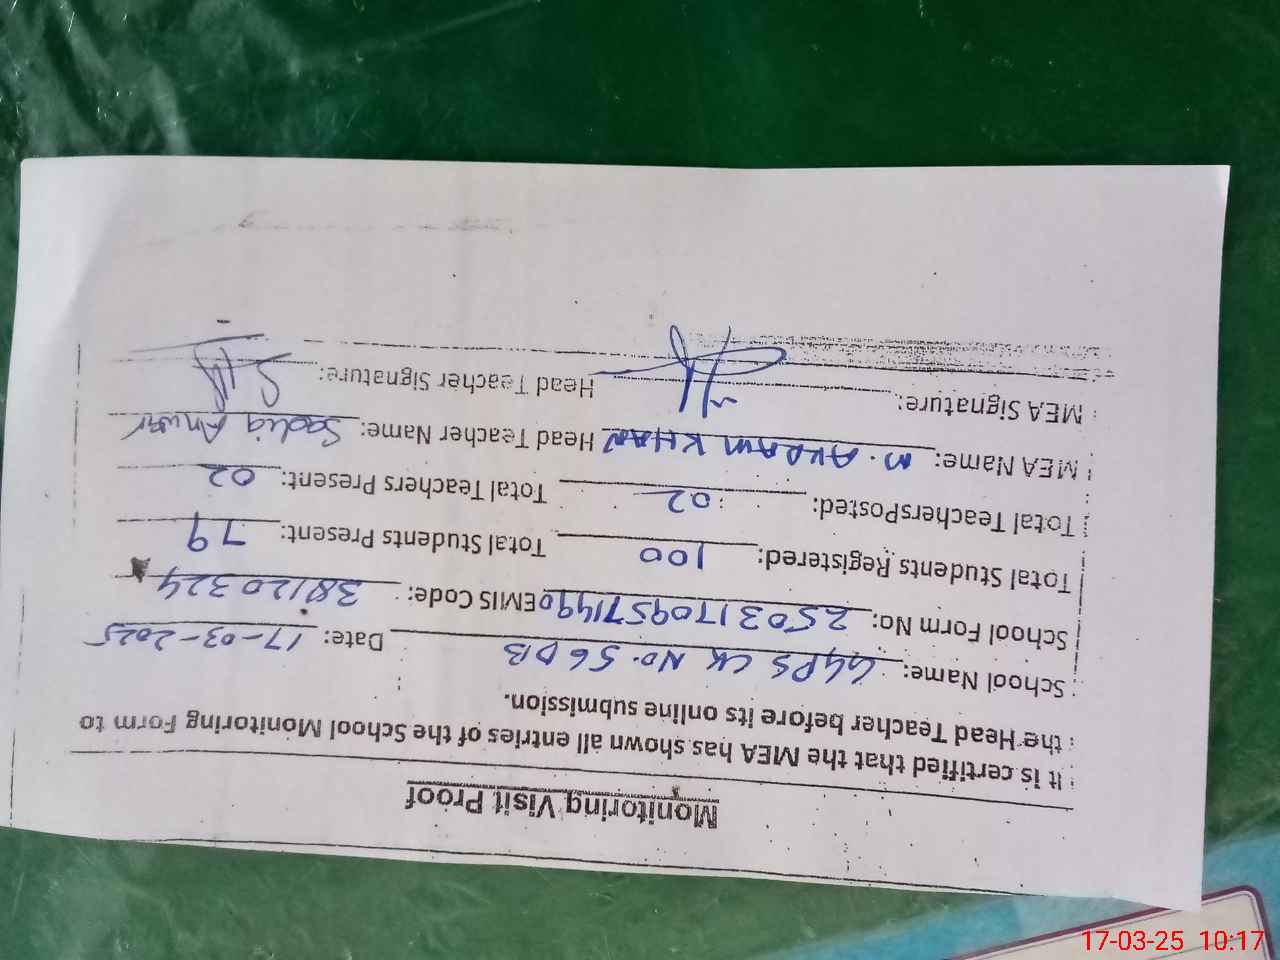 Monitoring Visit Proof
It is certified that the MEA has shown all entries of the School Monitoring Form to
the Head Teacher before its online submission.
School Name: GGPS CK NO. 56 DB Date: 17-03-2025
School Form No: 250317095714490 EMIS Code: 38120324
Total Students Registered: 100 Total Students Present: 79
Total TeachersPosted: 02 Total Teachers Present: 02
MEA Name: M. AKRAM KHAN Head Teacher Name: Sadia Anwar
MEA Signature: Head Teacher Signature:
17-03-25 10:17